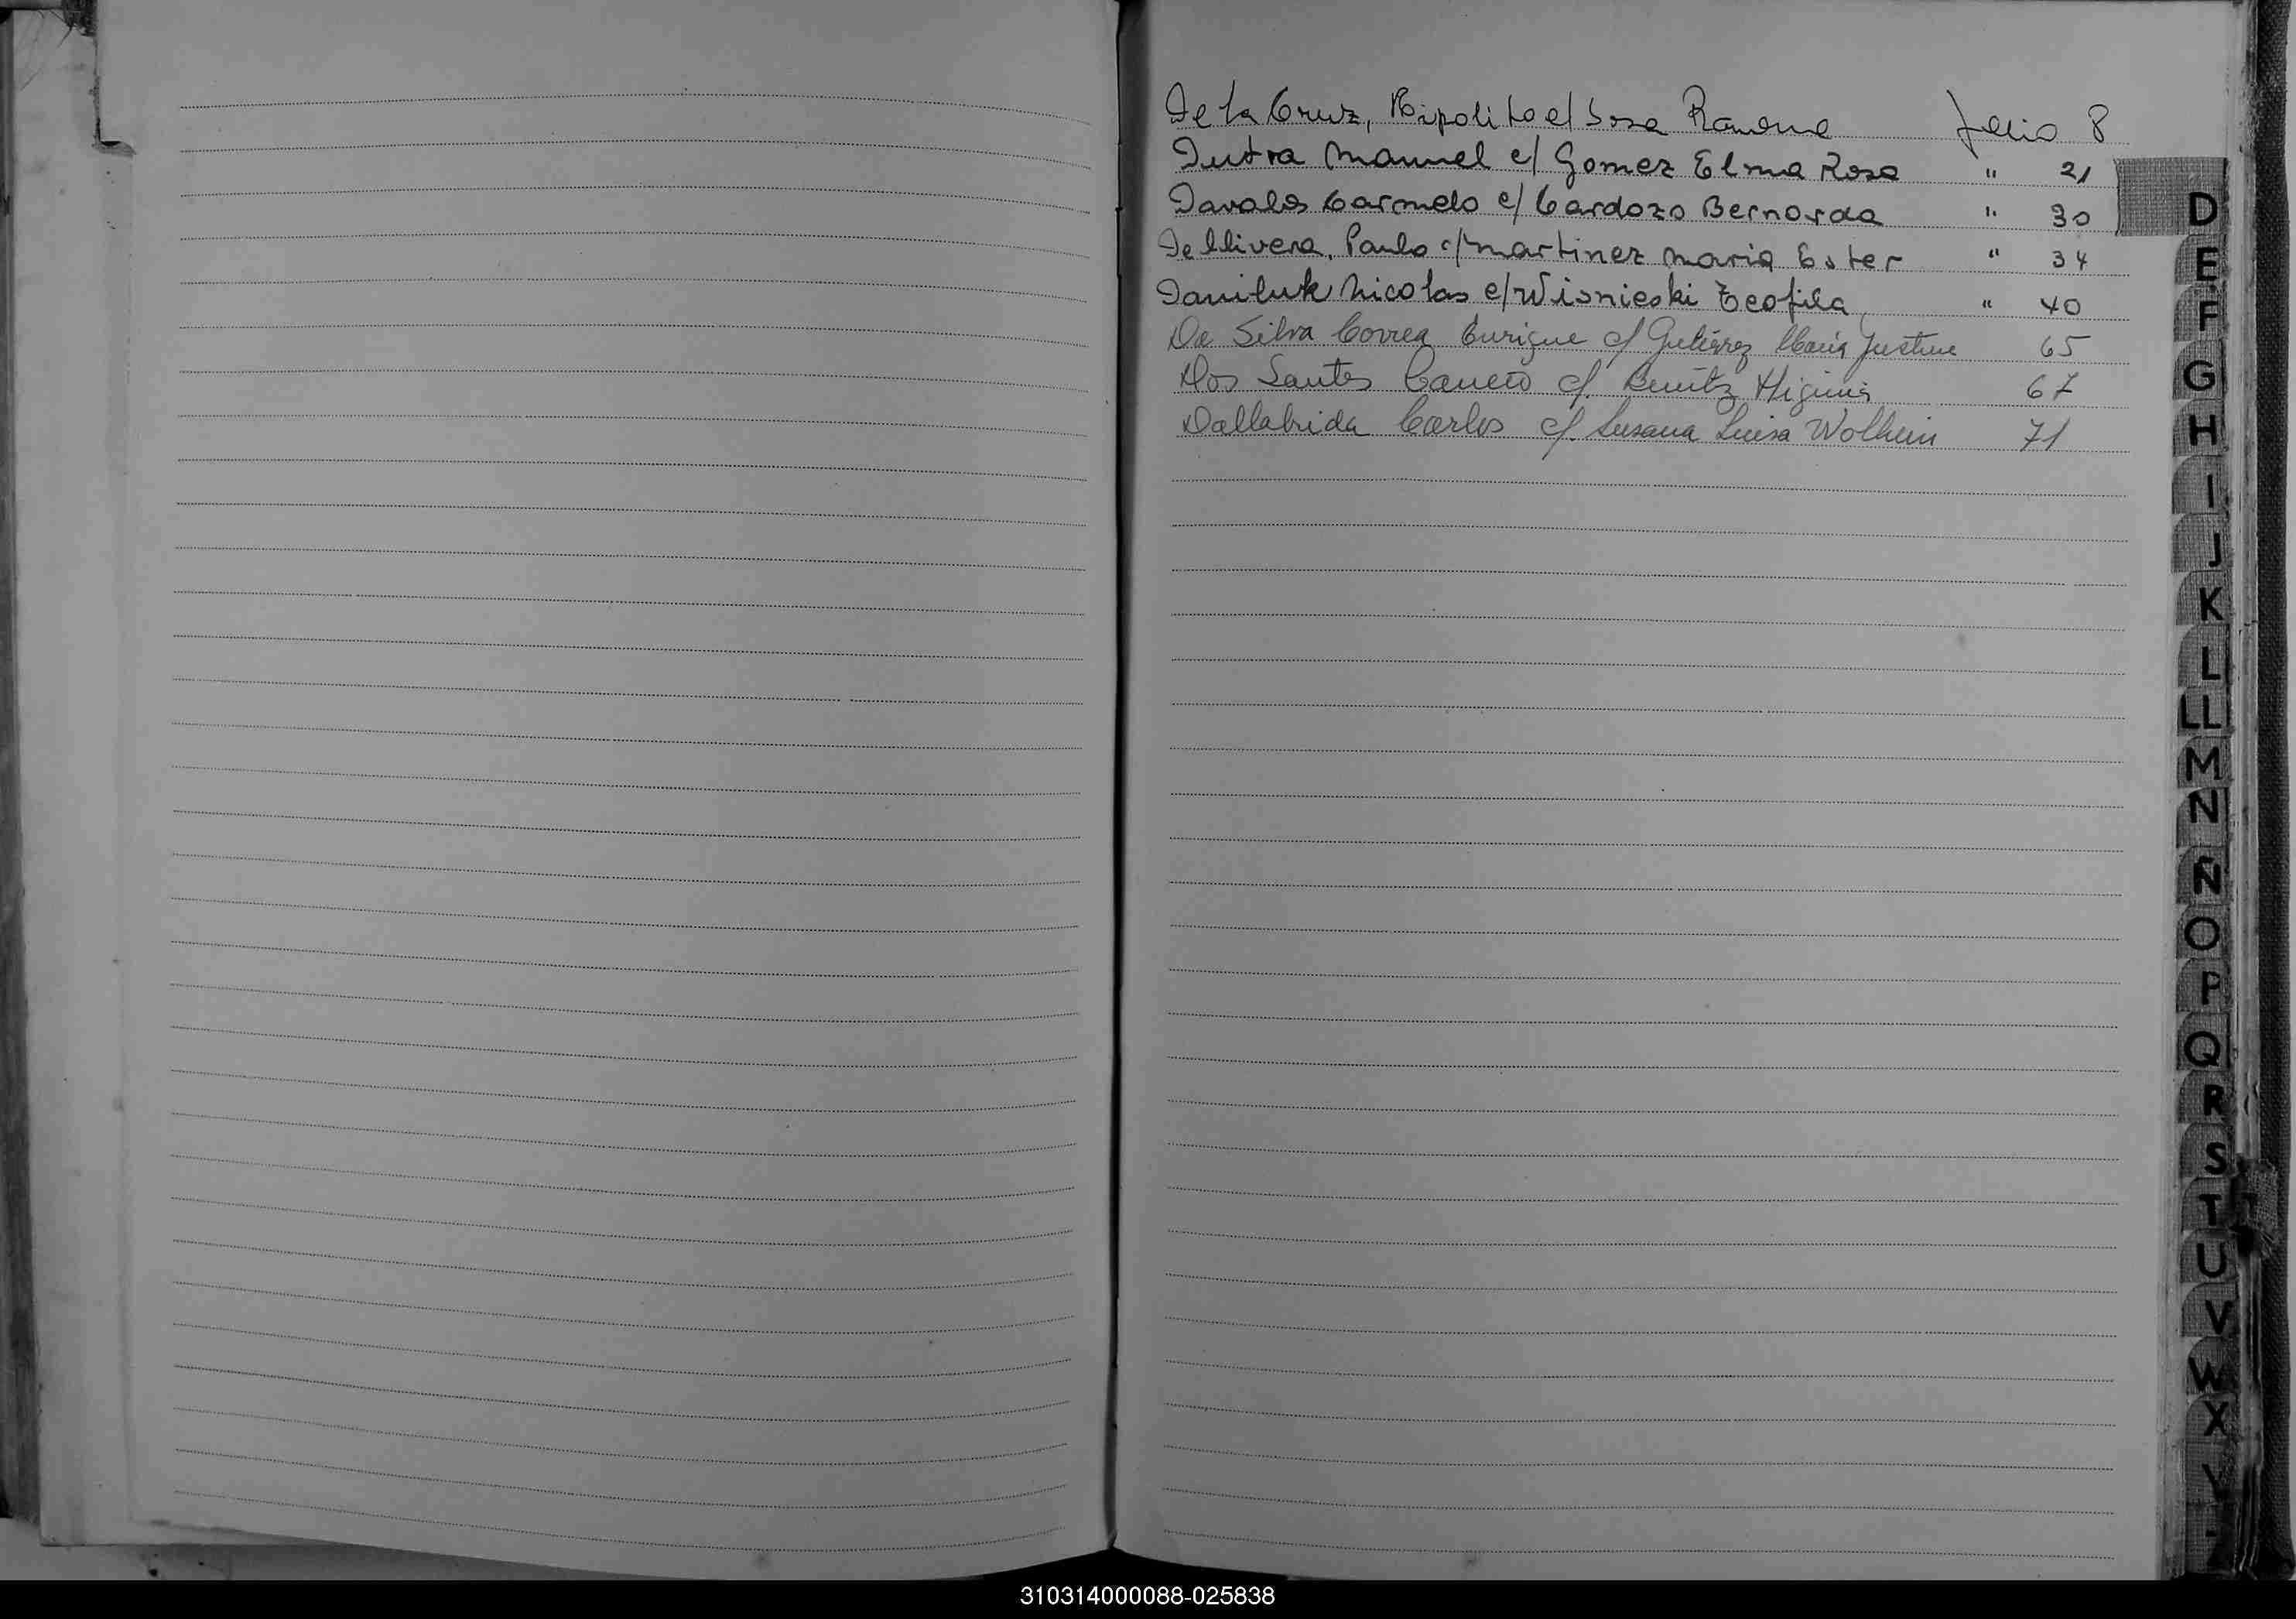 De La Cruz, Hipolito c/ Sosa Ramona folio 8
Dutra Manuel c/ Gomez Elma Rosa " 21
Davalos Carmelo c/ Cardozo Bernarda " 30
De Llivera, Paulo c/ Martinez Maria Ester " 34
Daniluk Nicolas c/ Wisnieski Teofila " 40
Da Silva Correa Enrique c/ Gutiérrez María Justina 65
Dos Santos c/. Benítez Higinia 67
Dallabrida Carlos c/. Susana Luisa Wolhein 71
D
E
F
G
H
I
J
K
L
LL
M
N
Ñ
O
P
Q
R
S
T
U
V
W
X
310314000088-025838